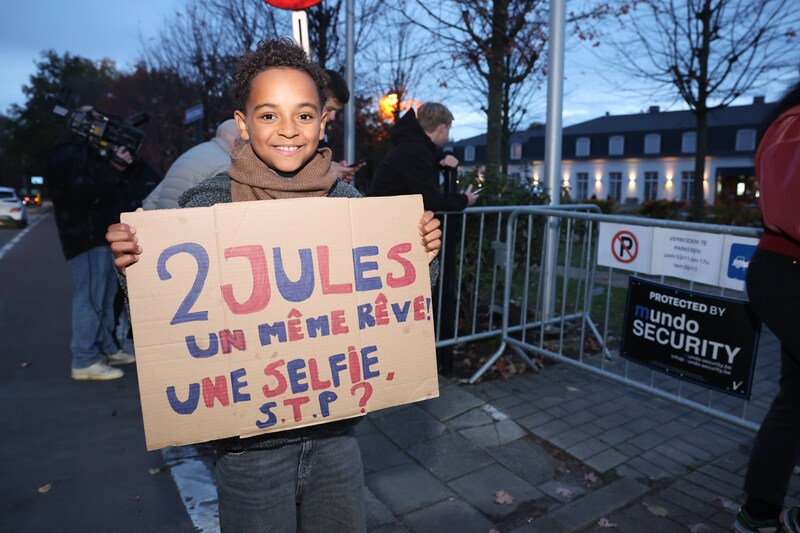 2 JULES
UN MÊME RÊVE!
UNE SELFIE,
S.T.P?
P
VERBODEN
PROTECTED BY
mundo
SECURITY